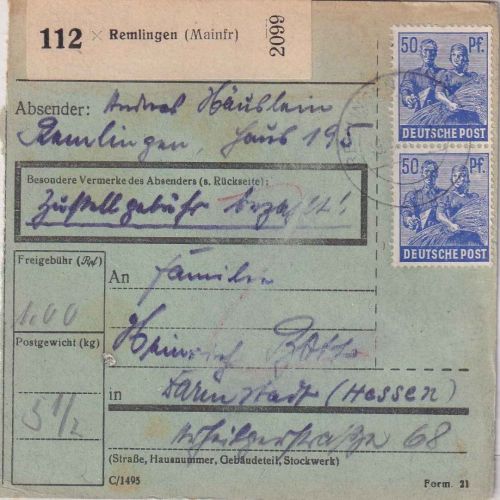 112 × Remlingen (Mainfr) 2099
50 Pf.
DEUTSCHE POST
50 Pf.
DEUTSCHE POST
Absender: Andreas Häuslein
Remlingen, Haus 195
Besondere Vermerke des Absenders (s. Rückseite):
Zustellgebühr bezahlt!
Freigebühr (Rpf)
1.00
Postgewicht (kg)
5 1/2
An Familie
Heinrich
in Darmstadt (Hessen)
Arheilgerstraße 68
(Straße, Hausnummer, Gebäudeteil, Stockwerk)
C/1495 Form. 21